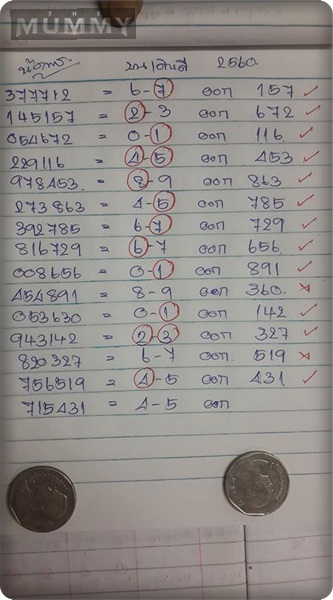 THE MUMMY
2560
377712 = 6-7 ออก 157 ✓
145157 = 2-3 ออก 672 ✓
054672 = 0-1 ออก 116 ✓
229116 = 4-5 ออก 453 ✓
978453 = 8-9 ออก 863 ✓
273863 = 4-5 ออก 785 ✓
392785 = 6-7 ออก 729 ✓
816729 = 6-7 ออก 656 ✓
008656 = 0-1 ออก 891 ✓
454891 = 8-9 ออก 360 ×
053630 = 0-1 ออก 142 ✓
943142 = 2-3 ออก 327 ✓
820327 = 6-7 ออก 519 ×
756519 = 4-5 ออก 431 ✓
715431 = 4-5 ออก